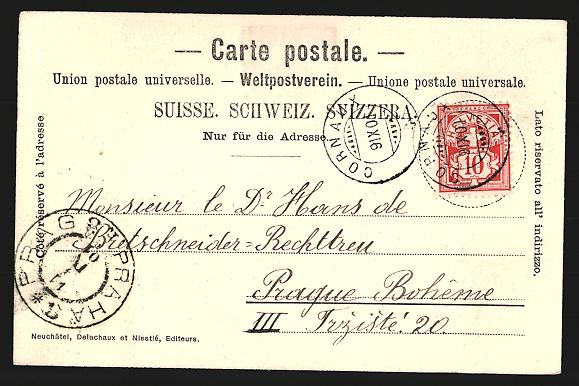 — Carte postale. —
Union postale universelle. — Weltpostverein. — Unione postale universale.
SUISSE. SCHWEIZ. SVIZZERA.
Nur für die Adresse.
Côté réservé à l'adresse
Lato riservato all' indirizzo.
CORNAUX
10 XI 6
CORNAUX
10 XI 6
HELVETIA
10
Monsieur le Dr Hans de
Bretschneider=Rechttreu
Prague Bohême
III Tržiště 20.
PRAG PRAHA
Neuchâtel, Delachaux et Niestlé, Editeurs.